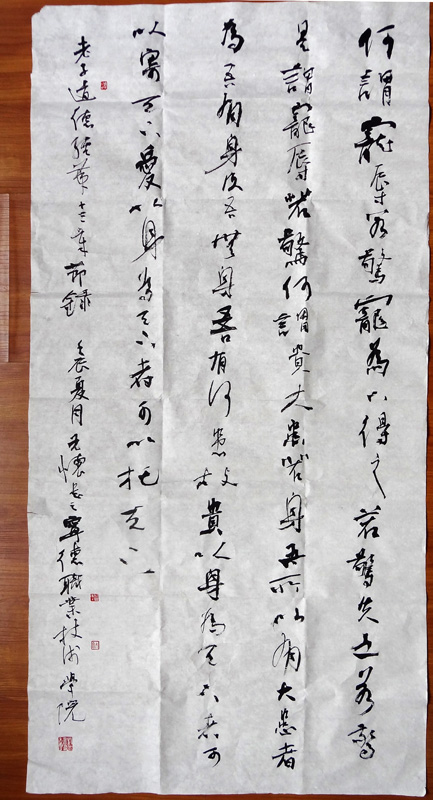 何謂寵辱若驚寵為下得之若驚失之若驚
是謂寵辱若驚何謂貴大患若身吾所以有大患者
為吾有身及吾無身吾有何患故貴以身為天下者可
以寄天下愛以身為天下者可以托天下
老子道德經第十三章節錄 壬辰夏月 寧德職業技術學院